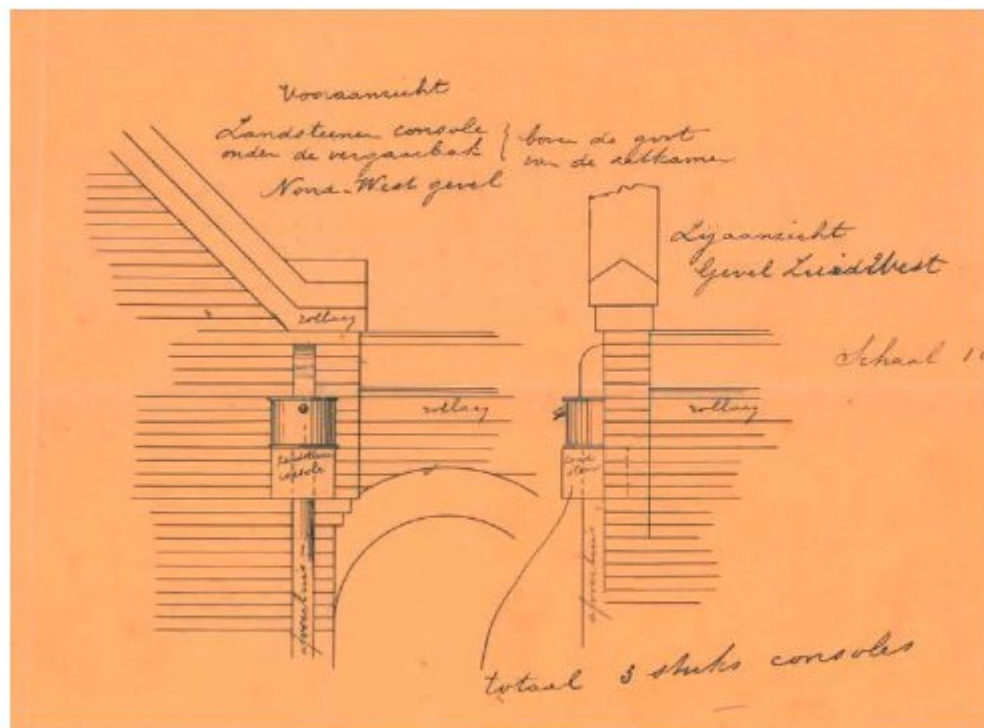 Vooraanzicht
Zandsteenen console
onder de vergaarbak
} boven de goot
van de eetkamer
Noord-West gevel
Zijaanzicht
Gevel Zuid West
rollaag
Schaal 1
rollaag
rollaag
Zandsteen
console
zand
steen
afvoerbuis
afvoerbuis
totaal 3 stuks consoles